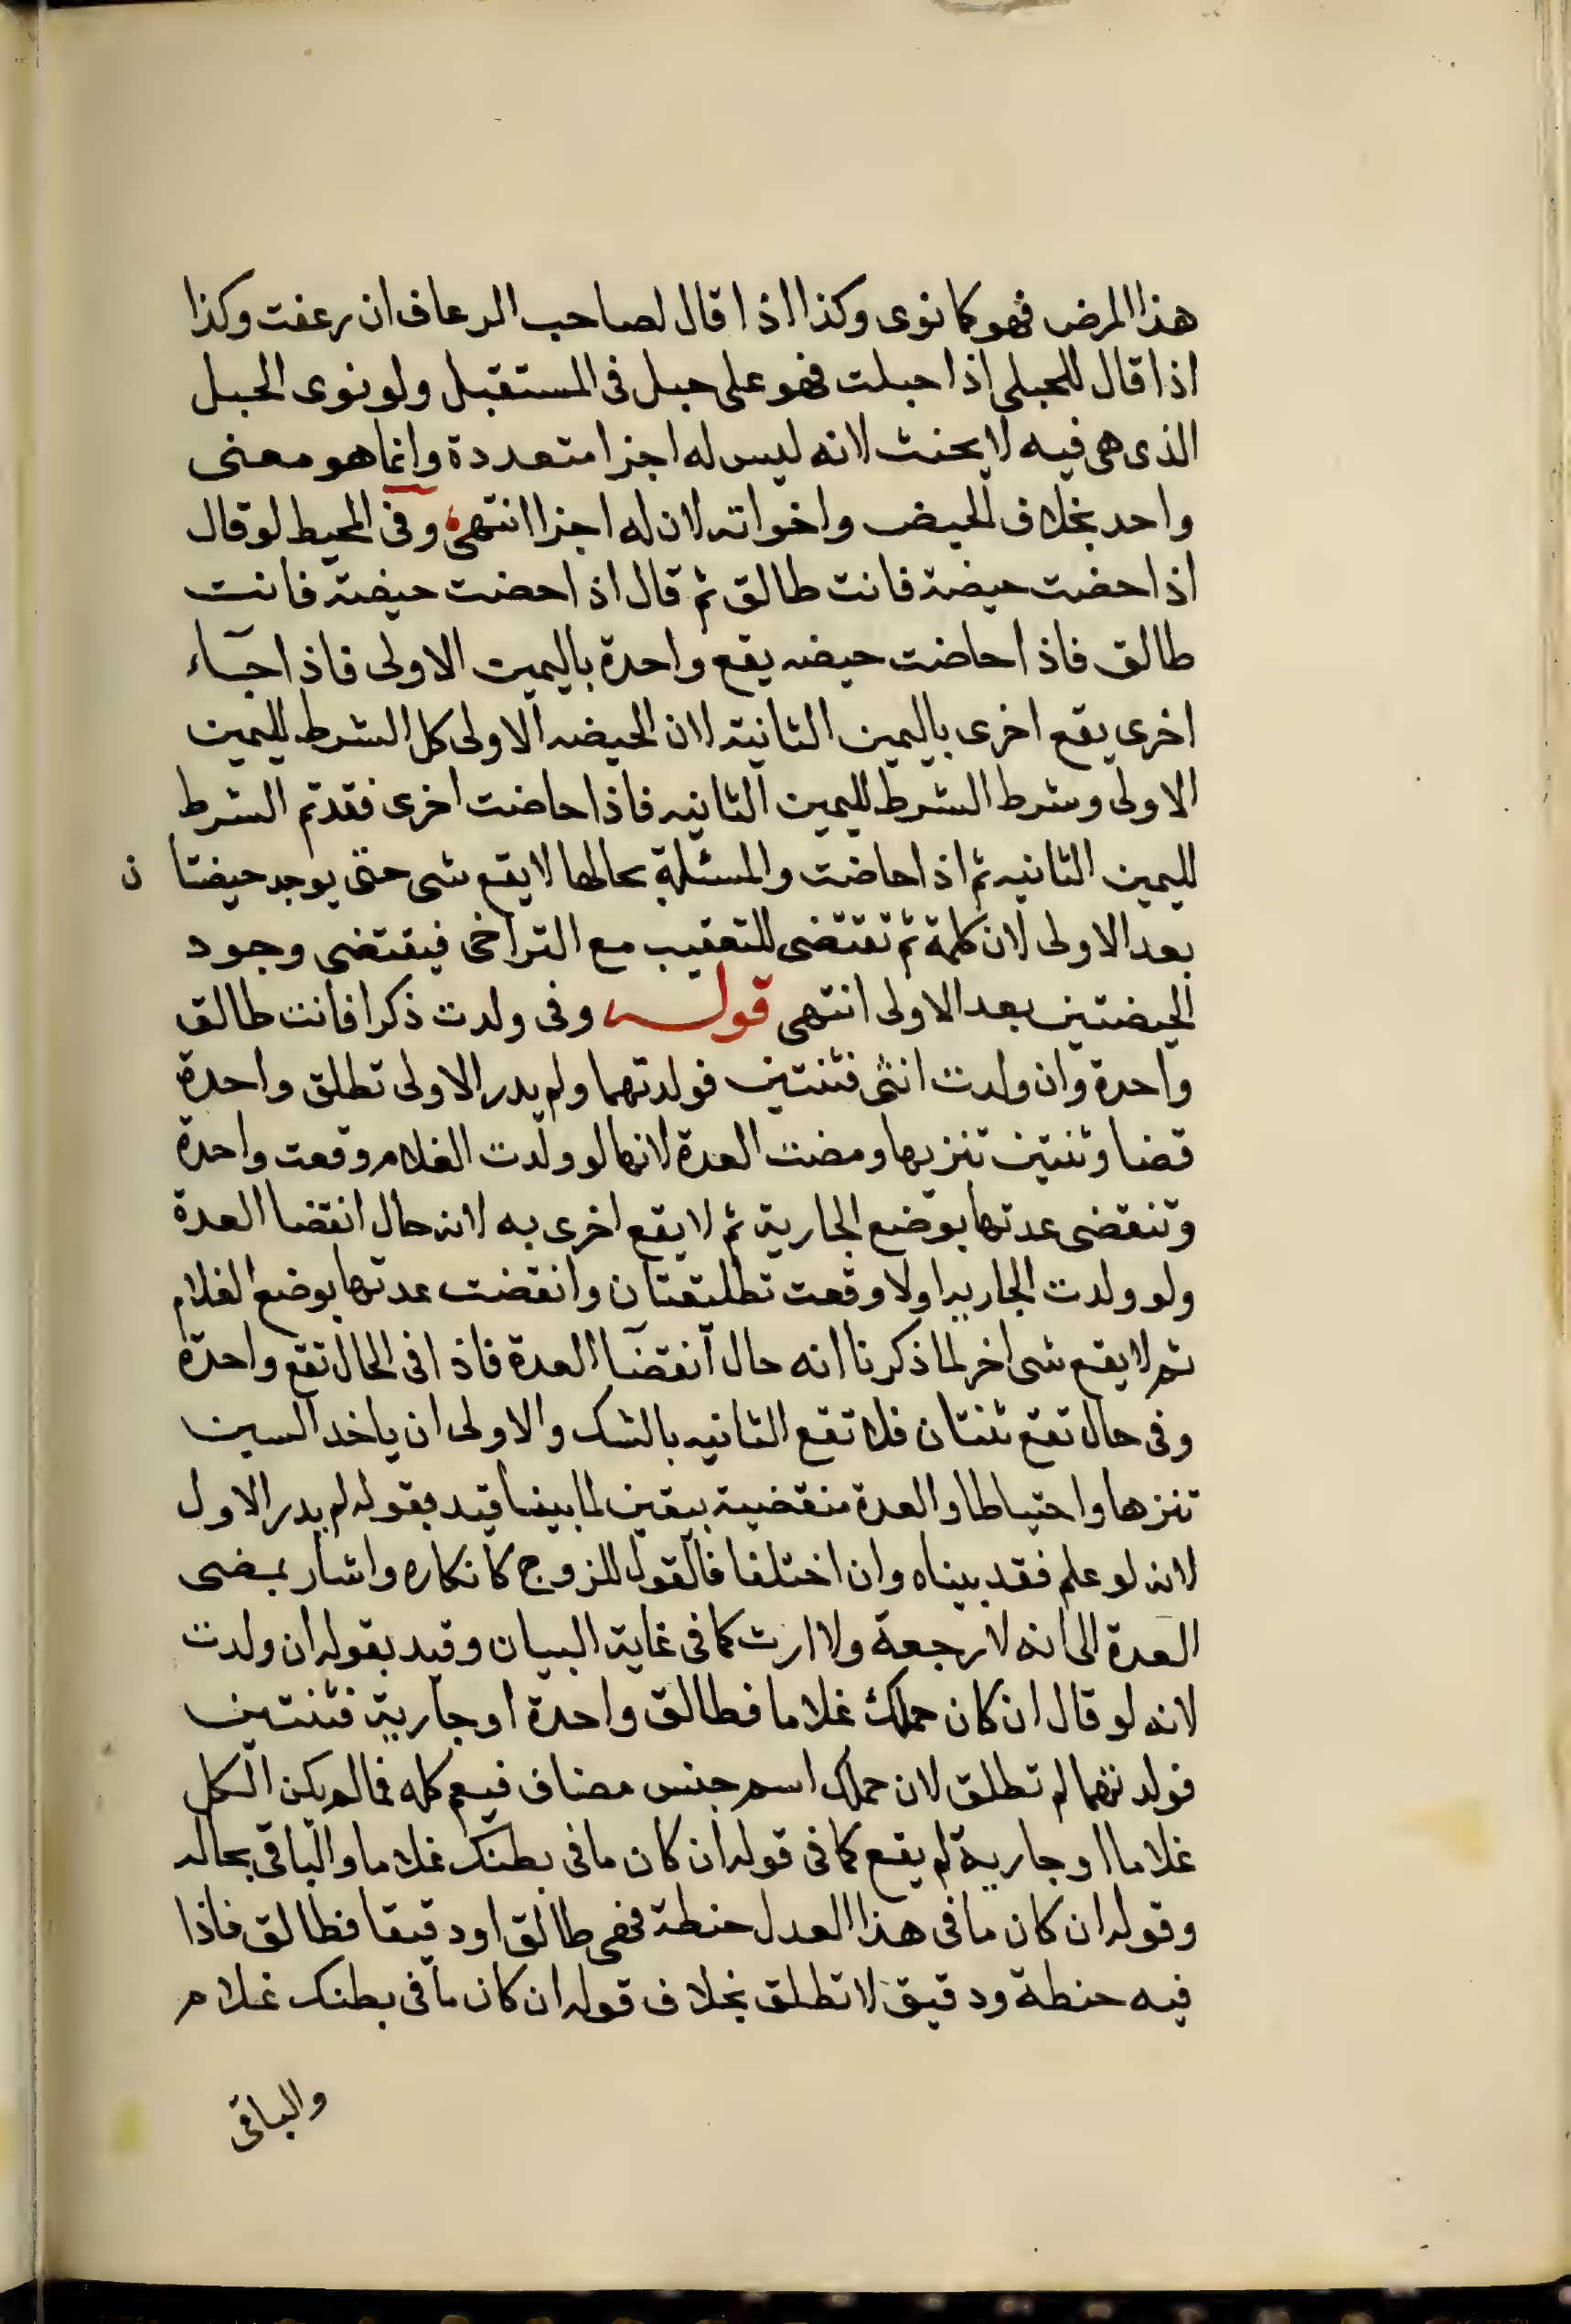 هذا المرض فهو كما نوى وكذا اذا قال لصاحب الرعاف ان رعفت وكذا
اذا قال للحبلى اذا حبلت فهو على حبل فى المستقبل ولو نوى الحبل
الذى هى فيه لا يحنث لانه ليس له اجزا متعددة وانما هو معنى
واحد بخلاف الحيض واخواته لان له اجزا انتهى وفى المحيط لو قال
اذا حضت حيضة فانت طالق ثم قال اذا حضت حيضة فانت
طالق فاذا حاضت حيضه يقع واحدة باليمين الاولى فاذا جآء
اخرى يقع اخرى باليمين الثانية لان الحيضه الاولى كل الشرط لليمين
الاولى وشرط الشرط لليمين الثانيه فاذا حاضت اخرى فقد تم الشرط
لليمين الثانيه ثم اذا حاضت والمسئلة بحالها لا يقع شى حتى يوجد حيضتا ن
بعد الاولى لان كلمة ثم تقتضى للتعقيب مع التراخى فيقتضى وجود
الحيضتين بعد الاولى انتهى قوله وفى ولدت ذكرا فانت طالق
واحدة وان ولدت انثى فثنتين فولدتهما ولم يدر الاولى تطلق واحدة
قضا وثنتين تنزيها ومضت العدة لانها لو ولدت الغلام وقعت واحدة
وتنقضى عدتها بوضع الجارية ثم لا يقع اخرى به لانه حال انقضا العدة
ولو ولدت الجاريه اولا وقعت تطليقتان وانقضت عدتها بوضع الغلام
ثم لا يقع شى اخر لما ذكرنا انه حال انقضآ العدة فاذا فى الحال تقع واحدة
وفى حال تقع ثنتان فلا تقع الثانيه بالشك والاولى ان ياخد السين
تنزها واحتياطا والعدة منقضية بيقين لما بينا قيد بقوله لم يدر الاول
لانه لو علم فقد بيناه وان اختلفا فالقول للزوج كانكاره واشار بمضى
العدة الى انه لا رجعة ولا ارث كما فى غاية البيان وقيد بقوله ان ولدت
لانه لو قال ان كان حملك غلاما فطالق واحدة او جارية فثنتين
فولدتهما لم تطلق لان حملك اسم جنس مضاف فيعم كله فما لم يكن الكل
غلاما او جارية لم يقع كما فى قوله ان كان ما فى بطنك غلاما والباقى بحاله
وقوله ان كان ما فى هذا العدل حنطة فهى طالق او دقيقا فطالق فاذا
فيه حنطة ودقيق لا تطلق بخلاف قوله ان كان ما فى بطنك غلام
والباقى